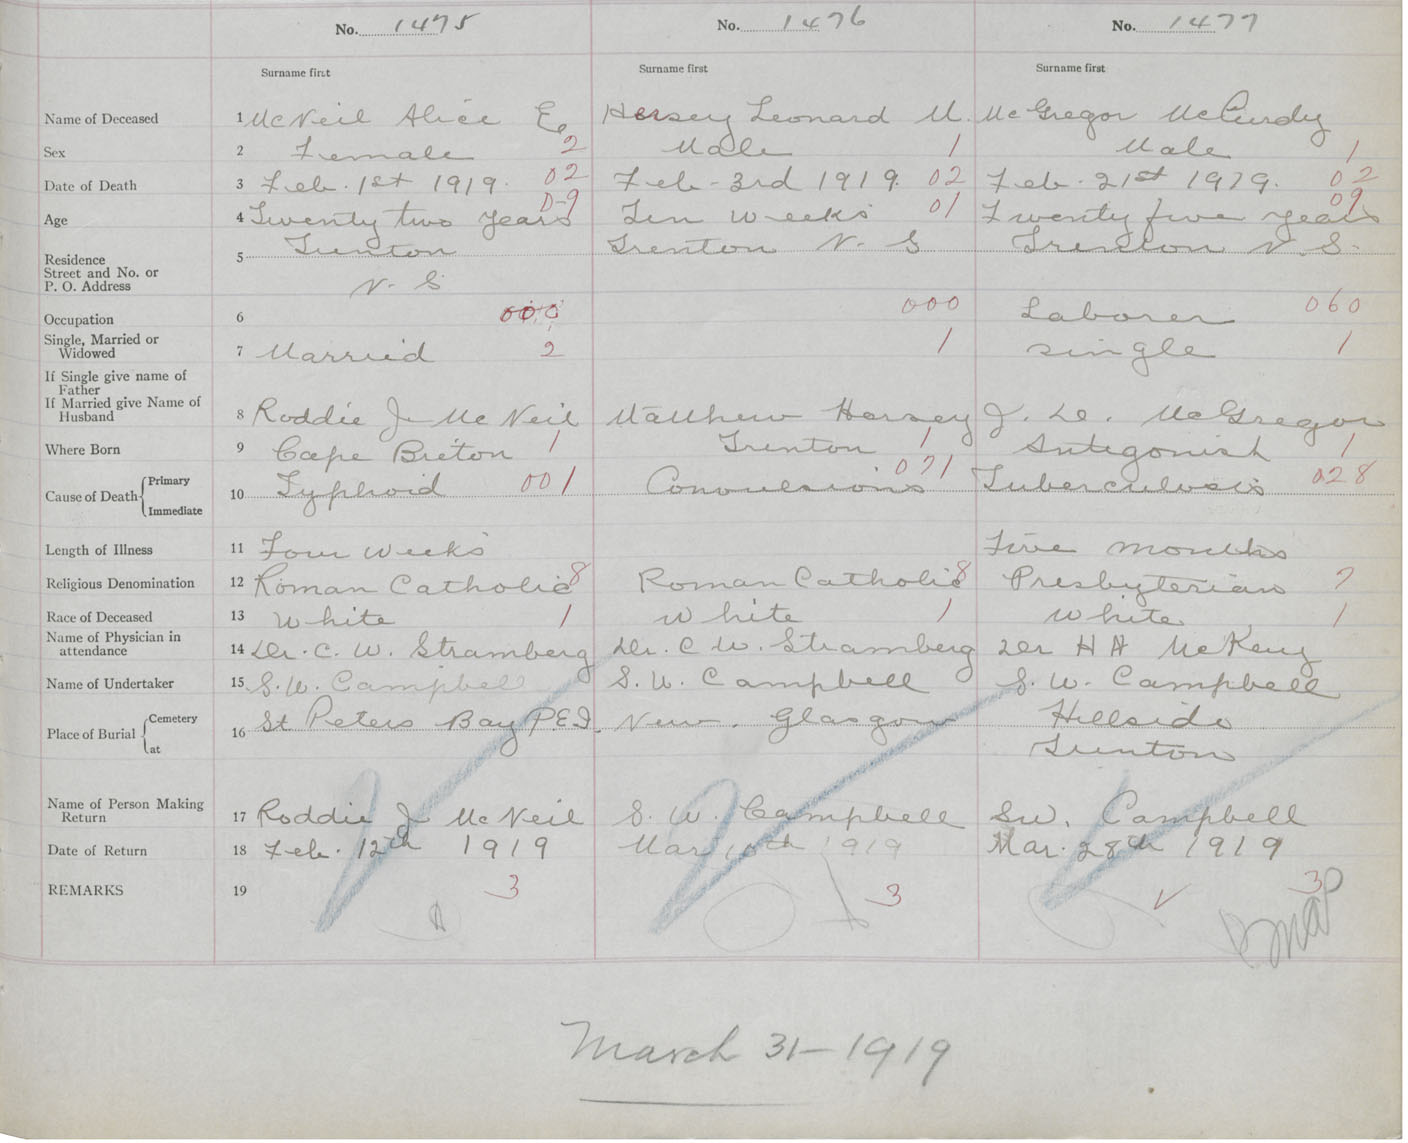 No. 1475 No. 1476 No. 1477
Surname first Surname first Surname first
Name of Deceased 1 McNeil Alice E. Hersey Leonard M. McGregor McCurdy
Sex 2 Female 2 Male 1 Male 1
Date of Death 3 Feb. 1st 1919. 02 Feb-3rd 1919. 02 Feb. 21st 1919. 02
Age 4 Twenty two years 0-9 Ten weeks 01 Twenty five years 09
Residence 5 Trenton Trenton N. S Trenton N. S.
Street and No. or
P. O. Address N. S
Occupation 6 000 000 Laborer 060
Single, Married or
Widowed 7 Married 2 1 single 1
If Single give name of
Father
If Married give Name of
Husband 8 Roddie J. McNeil Matthew Hersey J. D. McGregor
Where Born 9 Cape Breton 1 Trenton 1 Antigonish 1
Cause of Death Primary 10 Typhoid 001 Convulsions 071 Tuberculosis 028
Immediate
Length of Illness 11 Four weeks Five months
Religious Denomination 12 Roman Catholic 8 Roman Catholic 8 Presbyterian 7
Race of Deceased 13 White 1 White 1 White 1
Name of Physician in
attendance 14 Dr. C. W. Stramberg Dr. C W. Stramberg Dr H H McKay
Name of Undertaker 15 S. W. Campbell S. W. Campbell S. W. Campbell
Place of Burial Cemetery 16 St Peters Bay P.E.I. New Glasgow Hillside
at Trenton
Name of Person Making
Return 17 Roddie J McNeil S. W. Campbell S W. Campbell
Date of Return 18 Feb. 12th 1919 Mar 10th 1919 Mar. 28th 1919
REMARKS 19 3 3 3
March 31-1919